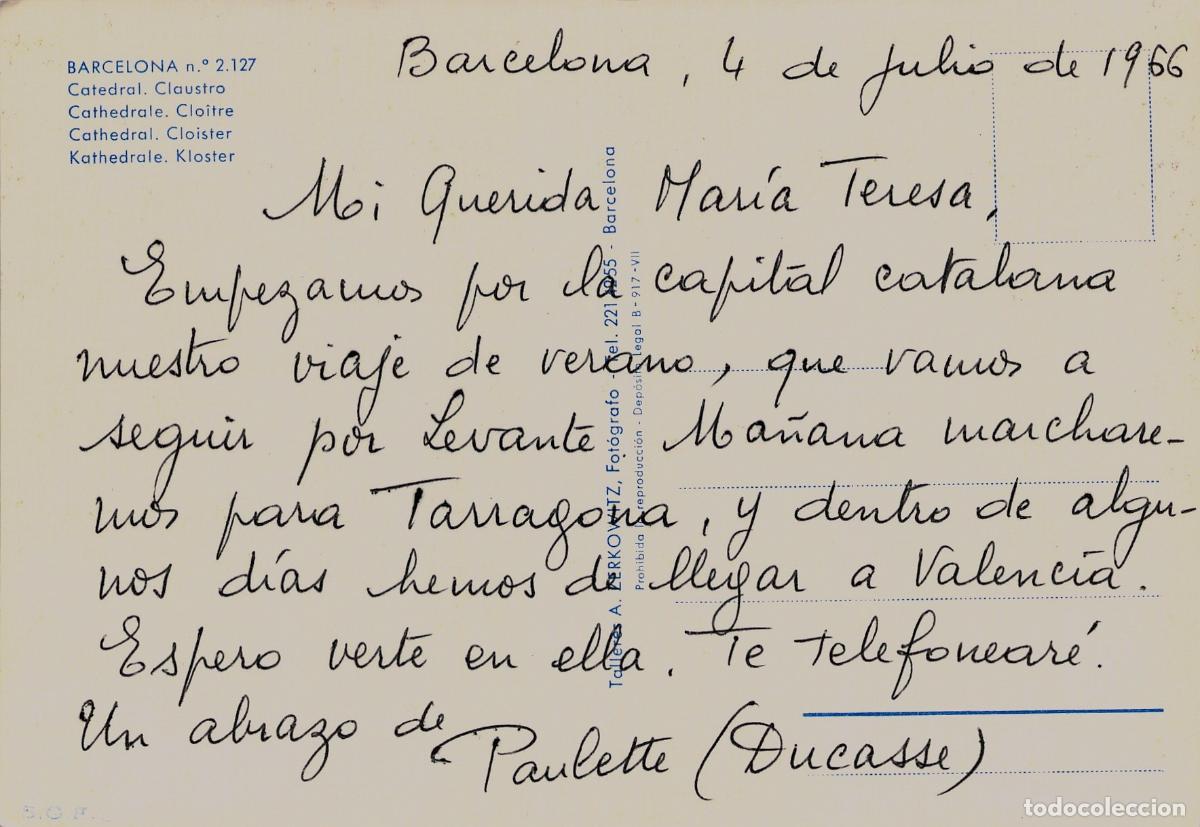 BARCELONA n.º 2.127
Catedral. Claustro
Cathedrale. Cloître
Cathedral. Cloister
Kathedrale. Kloster
Barcelona, 4 de julio de 1966
Mi Querida María Teresa,
Empezamos por la capital catalana
nuestro viaje de verano, que vamos a
seguir por Levante. Mañana marchare-
mos para Tarragona, y dentro de algu-
nos días hemos de llegar a Valencia.
Espero verte en ella. Te telefonearé.
Un abrazo de
Paulette (Ducasse)
Talleres A. ZERKOWITZ, Fotógrafo - Tel. 221 - Barcelona
Prohibida la reproducción - Depósito Legal B-917-VII
todocoleccion